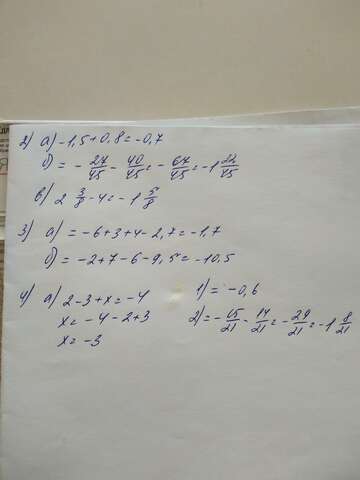 2) а) -1,5+0,8=-0,7
б) = - 27/45 - 40/45 = - 67/45 = -1 22/45
в) 2 3/8 - 4 = -1 5/8
3) а) = -6+3+4-2,7=-1,7
б) = -2+7-6-9,5=-10,5
4) а) 2-3+x=-4
x=-4-2+3
x=-3
1) = -0,6
2) = - 15/21 - 14/21 = - 29/21 = -1 8/21